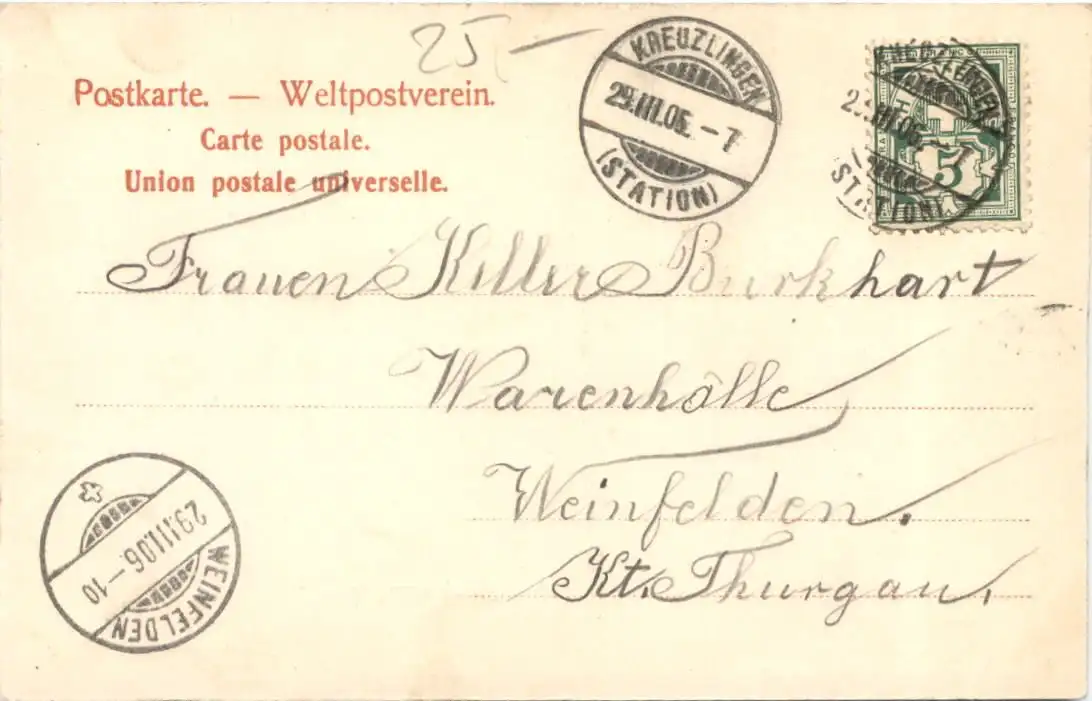 25.-
Postkarte. — Weltpostverein.
Carte postale.
Union postale universelle.
KREUZLINGEN
29.III.06.-7
(STATION)
5
(STATION)
Frauen Keller Burkhart
Warenhalle
Weinfelden.
Kt. Thurgau.
29.III.06-10
WEINFELDEN